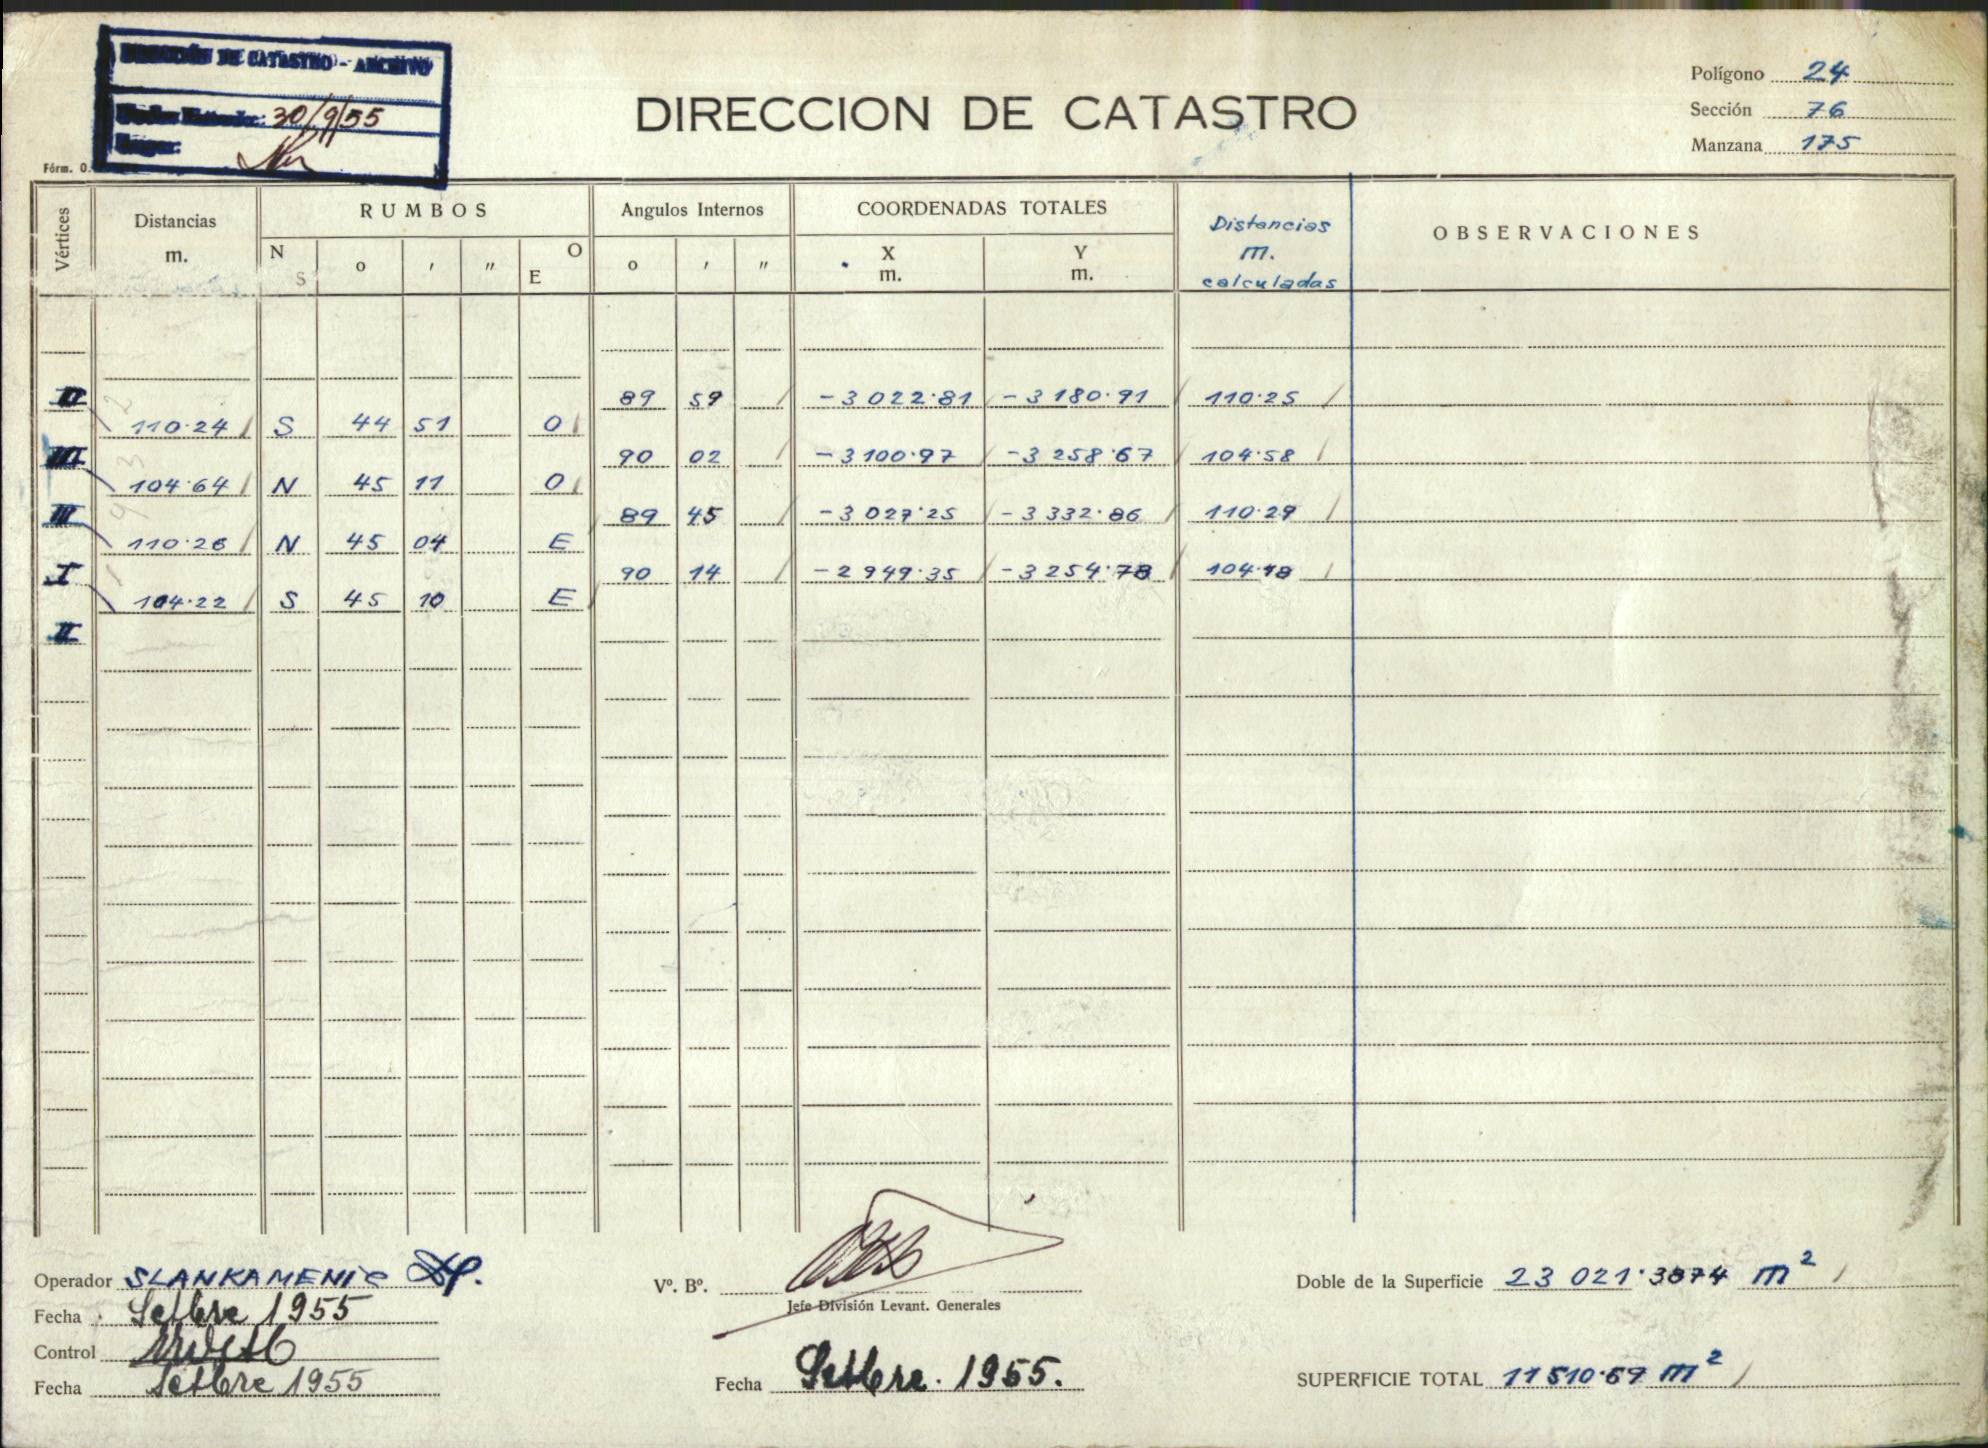 DIRECCIÓN DE CATASTRO - ARCHIVO
30/9/55
DIRECCION DE CATASTRO
Polígono 24
Sección 76
Manzana 175
Fórm. O.
Vértices
Distancias
m.
RUMBOS
N S o ' " E O
Angulos Internos
o ' "
COORDENADAS TOTALES
X
m.
Y
m.
Distancias
m.
calculadas
OBSERVACIONES
II 89 59 -3 022.81 -3 180.91 110.25
110.24 S 44 51 O
III 90 02 -3 100.97 -3 258.67 104.58
104.64 N 45 11 O
89 45 -3 027.25 -3 332.86 110.29
110.26 N 45 04 E
I 90 14 -2 949.35 -3 254.78 104.48
104.22 S 45 10 E
II
Operador SLANKAMENIC
Fecha Setbre 1955
Control
Fecha Setbre 1955
Vº. Bº.
Jefe División Levant. Generales
Fecha Setbre. 1955.
Doble de la Superficie 23 021.3874 m²
SUPERFICIE TOTAL 11 510.69 m²